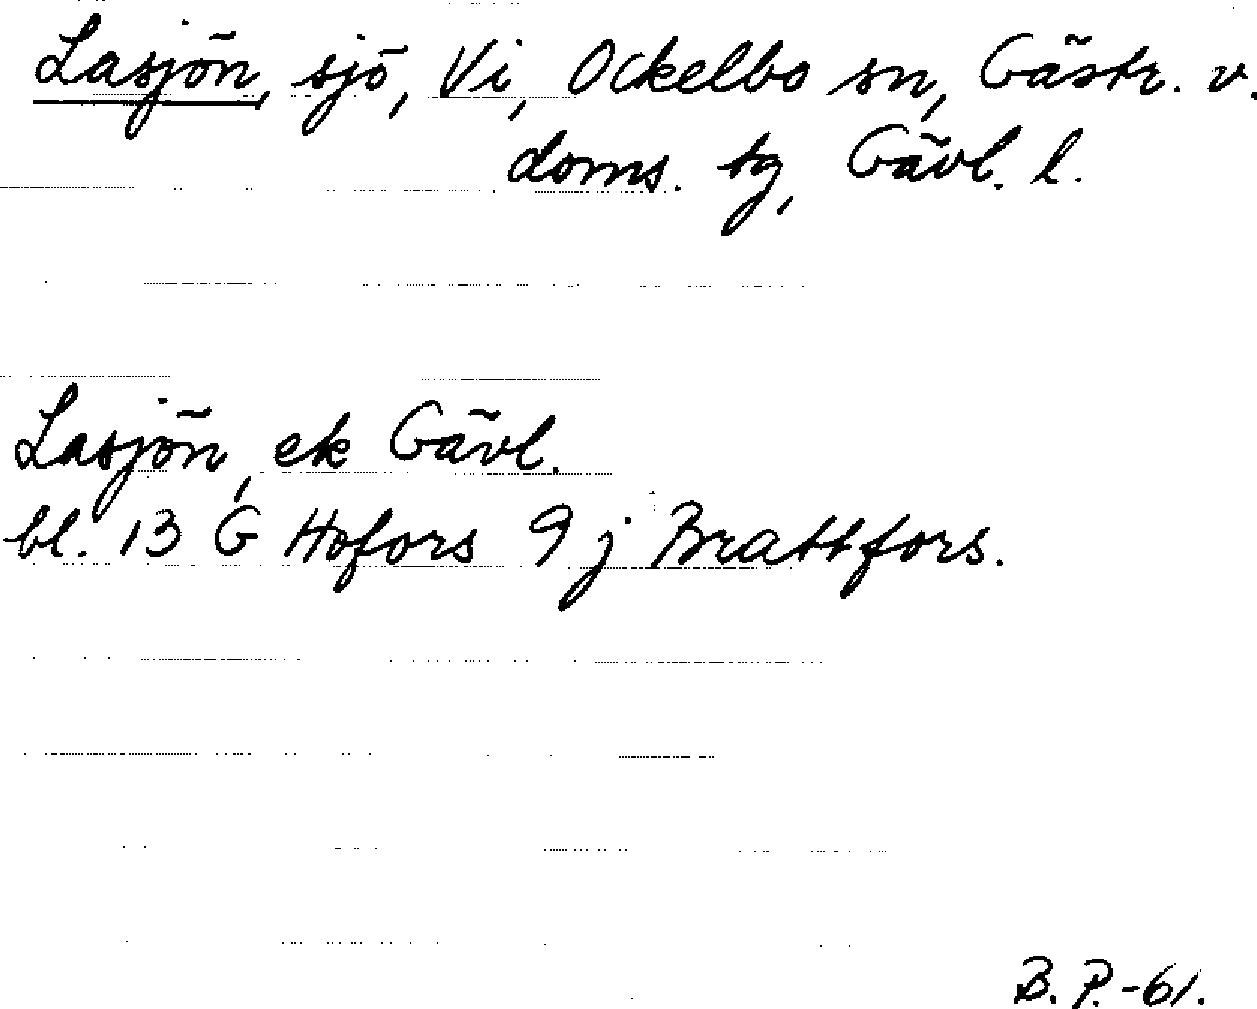 Lasjön, sjö, Vi, Ockelbo sn, Gästr. v.
doms. tg, Gävl. l.
Lasjön, ek Gävl.
bl. 13 G Hofors 9 j Brattfors.
B. P. -61.